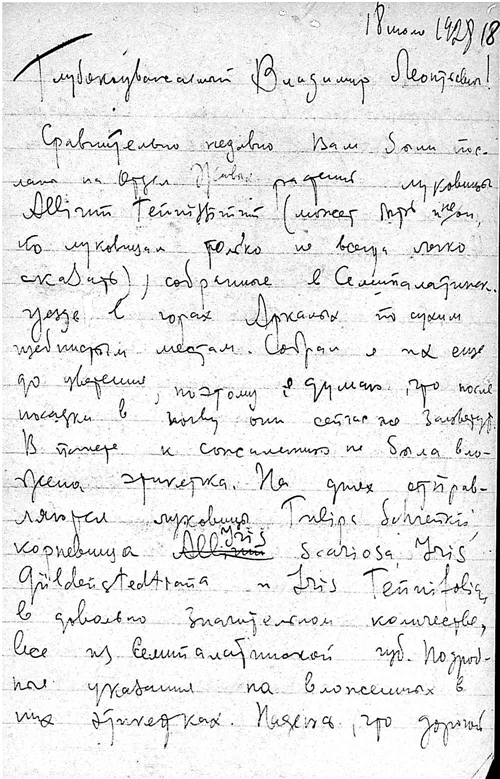 18 июля 1928 18
Глубокоуважаемый Владимир Леонтьевич!
Сравнительно недавно Вам были пос-
ланы на Отдел Живых растений луковицы
Allium (может быть иной,
по луковицам только не всегда легко
сказать), собранные в Семипалатинск.
уезде в горах Аркалык по сухим
щебнистым местам. Собрал я их еще
до цветения, поэтому я думаю, что после
посадки в почву они сейчас же зацветут.
В пакете к сожалению не была вло-
жена этикетка. На днях отправ-
ляются луковицы Tulipa Schrenkii,
корневища Allium Iris scariosa, Iris
Güldenstedtiana и Iris Tenuifolia,
в довольно значительном количестве,
все из Семипалатинской губ. Подроб-
ные указания на вложенных в
них этикетках. Надеюсь, что дорогой